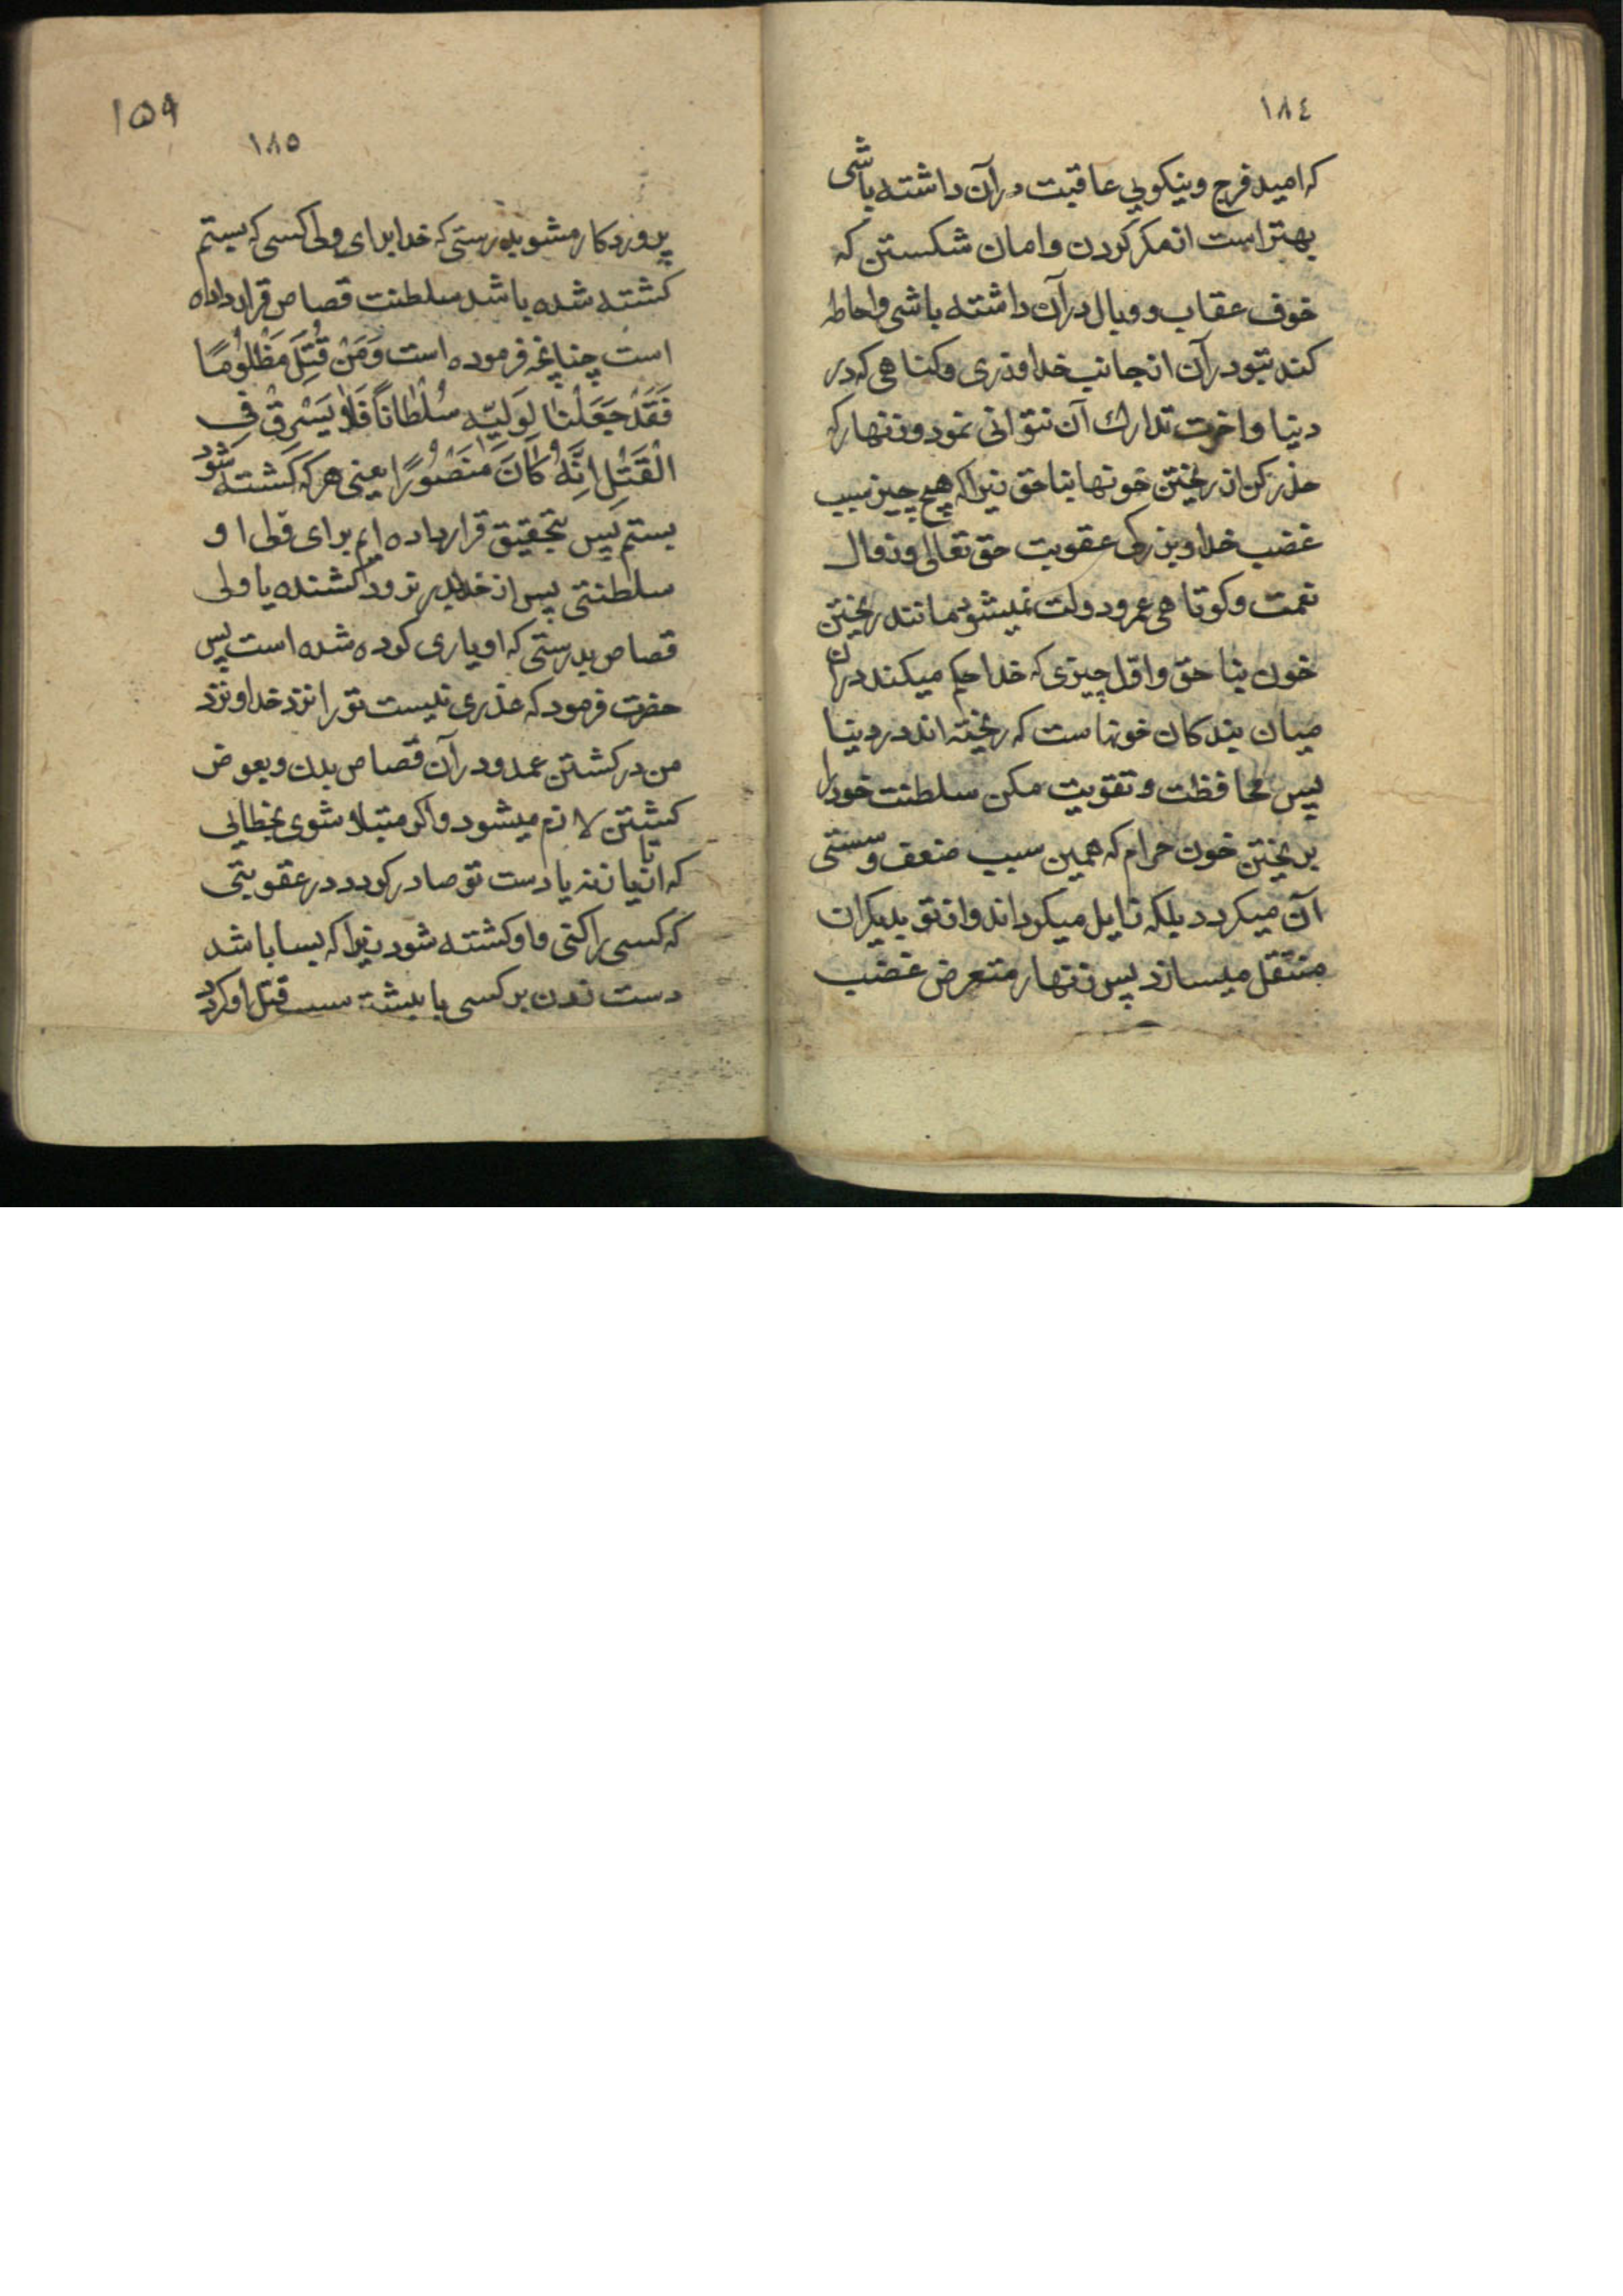 ١٨٤
که امید فرج و نیکویی عاقبت در آن داشته باشی
بهتر است از مکر کردن و امان شکستن که
خوف عقاب و وبال در آن داشته باشی و احاطه
کند بتو در آن از جانب خدا وزری و کناهی که در
دنیا و اخرت تدارك آن نتوانی نمود و زنهار که
حذر کن از ریختن خونها بناحق زیرا که هیچ چیز سبب
غضب خدا و بزرکی عقوبت حق تعالی و زوال
نعمت و کوتاهی عمر و دولت نمیشود مانند ریختن
خون بناحق و اول چیزی که خدا حکم میکند در آن
میان بندکان خونهاست که ریخته اند در دنیا
پس محافظت و تقویت مکن سلطنت خود را
بریختن خون حرام که همین سبب ضعف و سستی
آن میکردد بلکه زایل میکرداند و از تو بدیکران
منتقل میسازد پس زنهار متعرض غضب
١٥٩
١٨٥
پروردکار مشو بدرستی که خدا برای ولی کسی که بستم
کشته شده باشد سلطنت قصاص قرار داده
است چنانچه فرموده است وَمَنْ قُتِلَ مَظْلُومًا
فَقَدْ جَعَلْنَا لِوَلِیِّهِ سُلْطَانًا فَلَا یُسْرِفْ فِی
الْقَتْلِ اِنَّهُ کَانَ مَنْصُورًا یعنی هر که کشته شود
بستم پس بتحقیق قرار داده ایم برای ولی او
سلطنتی پس از حد بدر نرود کشنده یا ولی
قصاص بدرستی که او یاری کرده شده است پس
حضرت فرمود که عذری نیست تو را نزد خدا و نزد
من در کشتن عمد و در آن قصاص بدن و بعوض
کشتن لازم میشود و اکر مبتلا شوی بخطایی
که از تازیانه یا دست تو صادر کردد در عقوبتی
که کسی را کنی و او کشته شود زیرا که بسا باشد
دست زدن بر کسی یا بیشتر سبب قتل او کردد